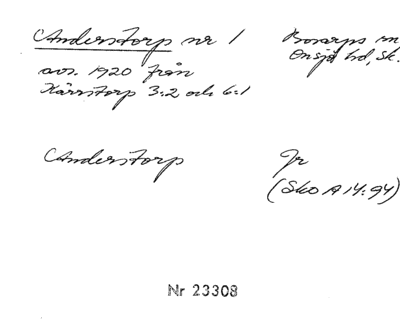 Anderstorp nr 1 Bosarps sn
Onsjö hd, Sk.
avs. 1920 från
Kärrstorp 3:2 och 6:1
Anderstorp Jr
(Sko A 14:94)
Nr 23308